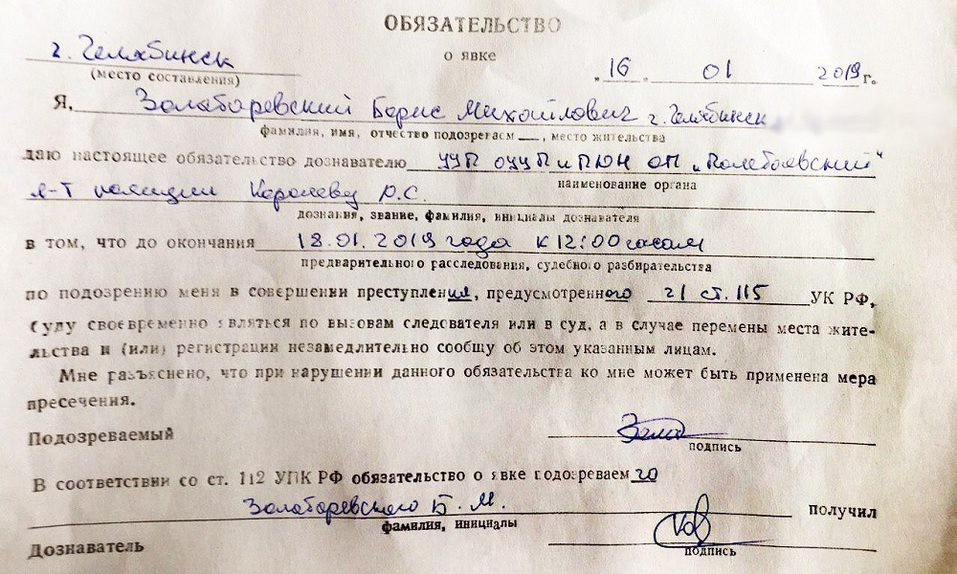 ОБЯЗАТЕЛЬСТВО
о явке
г. Челябинск
(место составления)
„ 16 „ 01 2019 г.
Я, Золотаревский Борис Михайлович г. Челябинск
фамилия, имя, отчество подозреваем ___, место жительства
даю настоящее обязательство дознавателю УУП ОУУП и ПДН ОП „Полетаевский“
наименование органа
л-т полиции Королеву Р.С.
дознания, звание, фамилия, инициалы дознавателя
в том, что до окончания 18.01.2019 года к 12:00 часам
предварительного расследования, судебного разбирательства
по подозрению меня в совершении преступления, предусмотренного ч1 ст. 115 УК РФ,
буду своевременно являться по вызовам следователя или в суд, а в случае перемены места жите-
льства и (или) регистрации незамедлительно сообщу об этом указанным лицам.
Мне разъяснено, что при нарушении данного обязательства ко мне может быть применена мера
пресечения.
Подозреваемый
подпись
В соответствии со ст. 112 УПК РФ обязательство о явке подозреваемго
Золотаревского Б. М. получил
фамилия, инициалы
Дознаватель
подпись